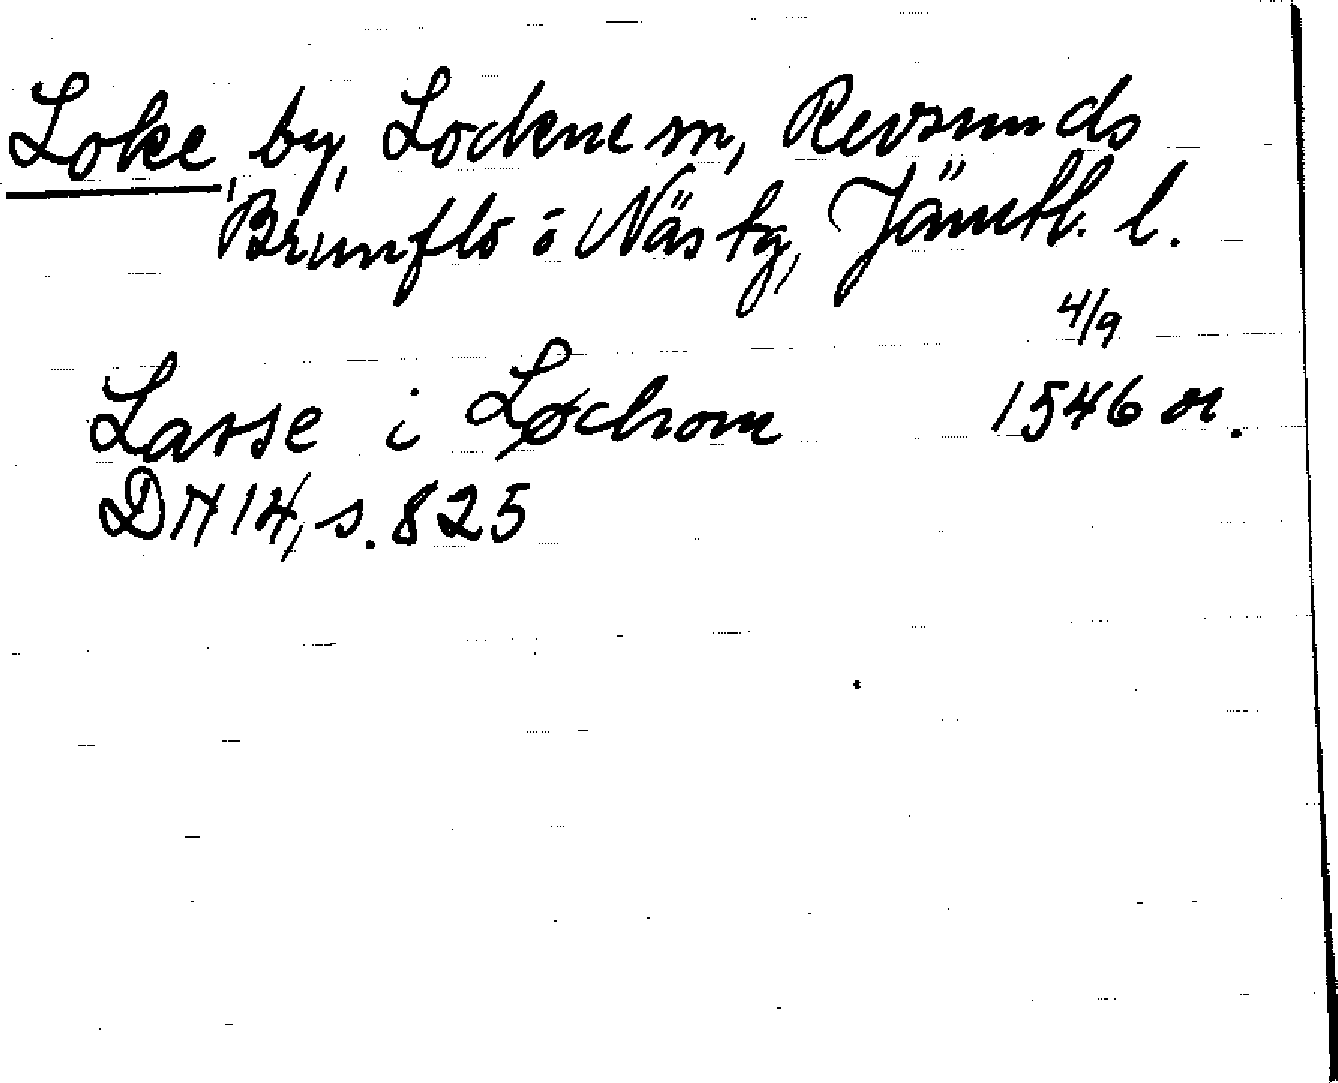 Loke, by, Lockne sn, Revsunds
Brunflo o Näs tg, Jämtl. l.
4/9
Lasse i Løchom 1546 or.
DN 14, s. 825